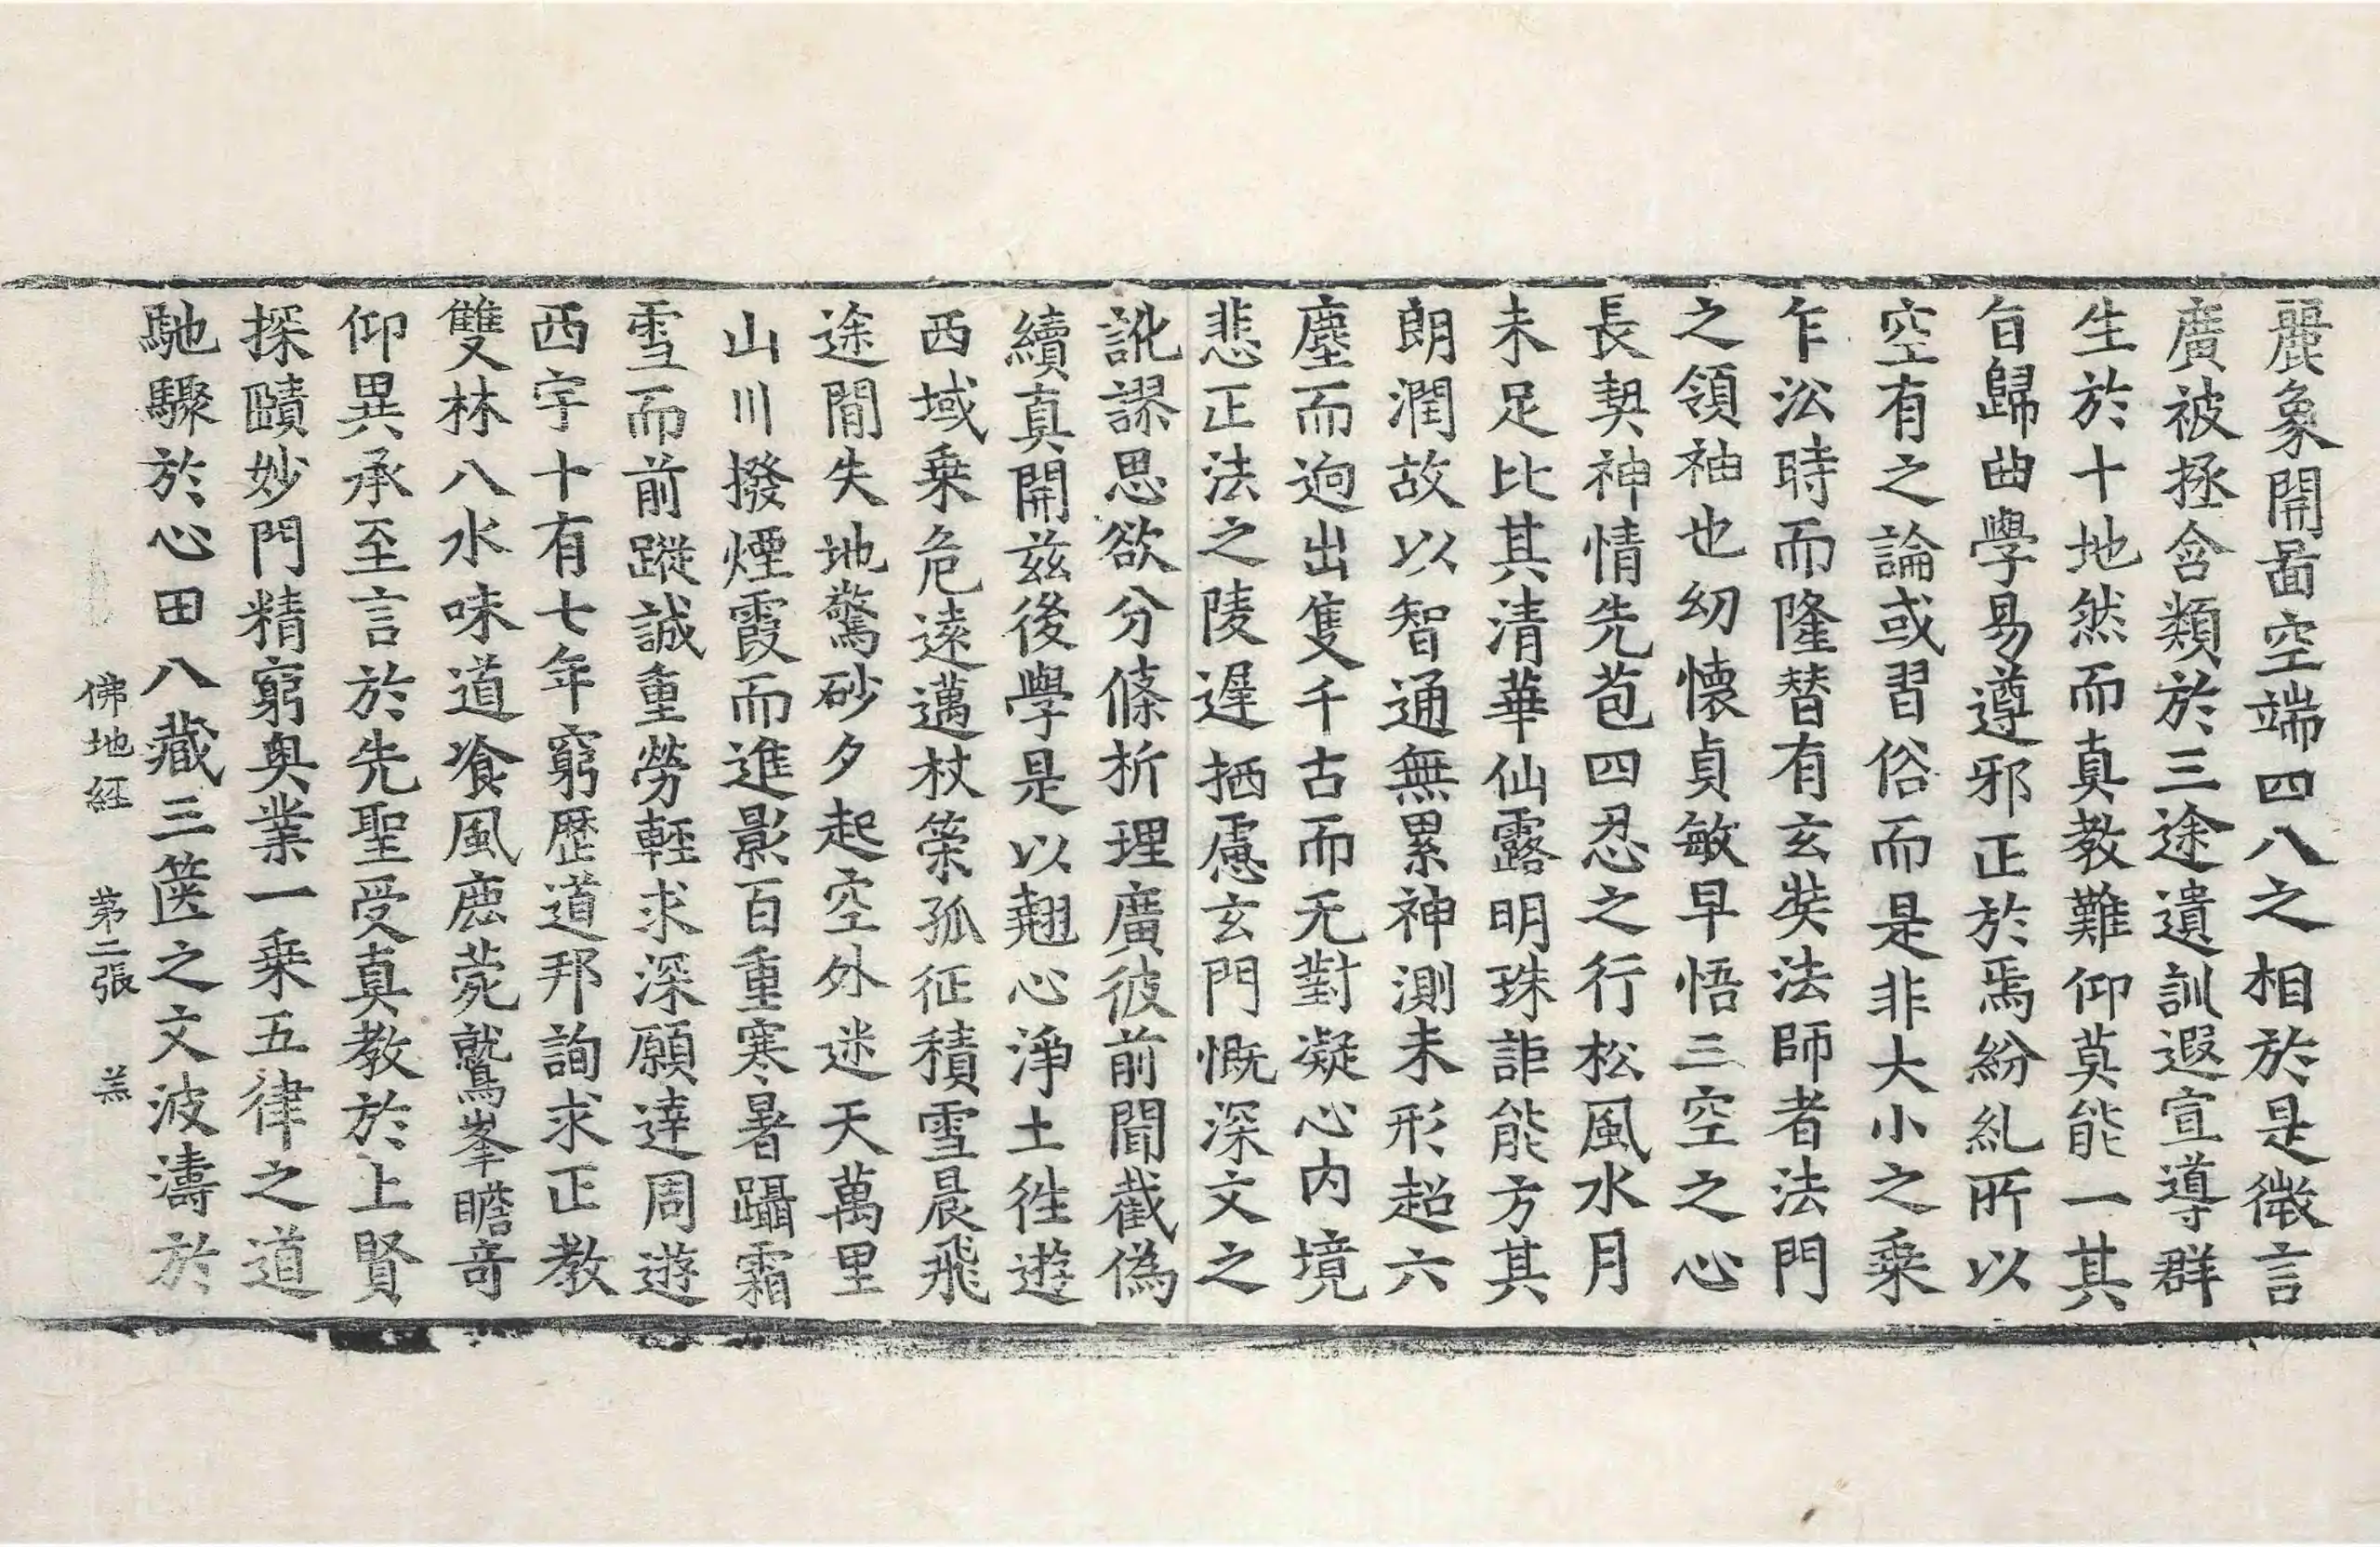 麗象開啚空端四八之相於是微言
廣被拯含類於三途遺訓遐宣導群
生於十地然而真教難仰莫能一其
旨歸曲學易遵邪正於焉紛糺所以
空有之論或習俗而是非大小之乗
乍沿時而隆替有玄奘法師者法門
之領袖也幼懷貞敏早悟三空之心
長契神情先苞四忍之行松風水月
未足比其清華仙露明珠詎能方其
朗潤故以智通無累神測未形超六
塵而逈出隻千古而无對凝心内境
悲正法之陵遲栖慮玄門慨深文之
訛謬思欲分條析理廣彼前聞截偽
續真開兹後學是以翹心淨土徃遊
西域乗危遠邁杖䇿孤征積雪晨飛
途閒失地驚砂夕起空外迷天萬里
山川撥煙霞而進影百重寒暑躡霜
雪而前蹤誠重勞輕求深願達周遊
西宇十有七年窮歷道邦詢求正教
雙林八水味道飡風鹿菀鷲峯瞻竒
仰異承至言於先聖受真教於上賢
探賾妙門精窮奥業一乗五律之道
馳驟於心田八藏三篋之文波濤於
佛地経 苐二張 羔